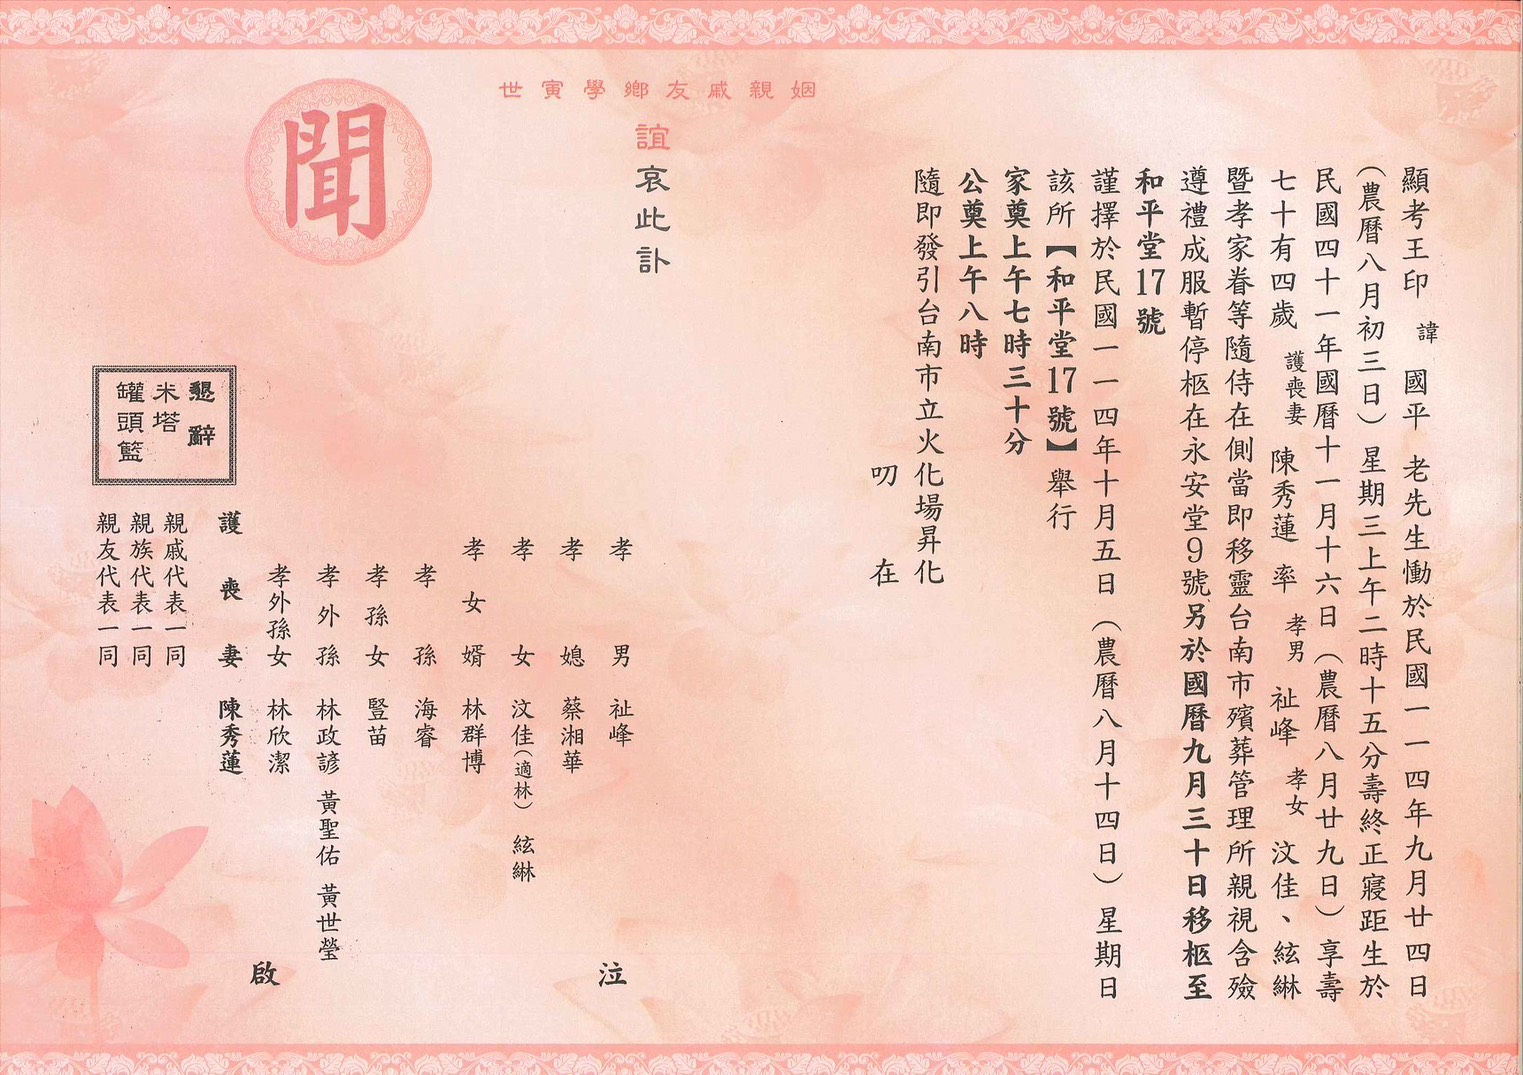 顯考王印諱國平老先生慟於民國一一四年九月廿四日
（農曆八月初三日）星期三上午二時十五分壽終正寢距生於
民國四十一年國曆十一月十六日（農曆八月廿九日）享壽
七十有四歲 護喪妻 陳秀蓮 率 孝男 祉峰 孝女 汶佳、絃綝
暨孝家眷等隨侍在側當即移靈台南市殯葬管理所親視含殮
遵禮成服暫停柩在永安堂9號另於國曆九月三十日移柩至
和平堂17號
謹擇於民國一一四年十月五日（農曆八月十四日）星期日
該所【和平堂17號】舉行
家奠上午七時三十分
公奠上午八時
隨即發引台南市立火化場昇化
叨在
姻親戚友鄉學寅世
誼哀此訃
聞
孝男 祉峰
孝媳 蔡湘華
孝女 汶佳（適林） 絃綝
孝女婿 林群博
孝孫 海睿
孝孫女 豎苗
孝外孫 林政諺 黃聖佑 黃世瑩
孝外孫女 林欣潔
護喪妻 陳秀蓮
泣
啟
親戚代表一同
親族代表一同
親友代表一同
懇辭
米塔
罐頭籃